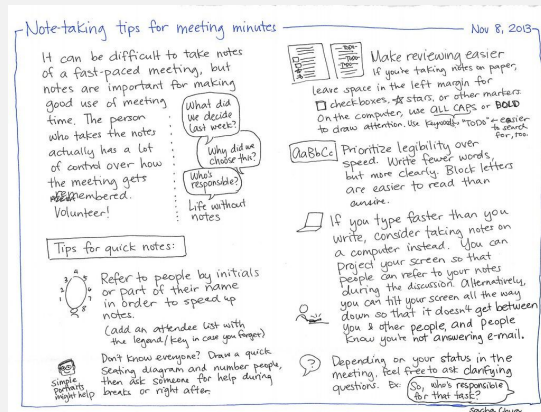 Note-taking tips for meeting minutes
Nov 8, 2013
It can be difficult to take notes
of a fast-paced meeting, but
notes are important for making
good use of meeting
time. The person
who takes the notes
actually has a lot
of control over how
the meeting gets
remembered.
Volunteer!
What did
we decide
last week?
Why did we
choose this?
Who's
responsible?
Life without
notes
Tips for quick notes:
1
2
3
4
5
6
7
8
Refer to people by initials
or part of their name
in order to speed up
notes.
(add an attendee list with
the legend/key in case you forget)
Simple
portraits
might help
Don't know everyone? Draw a quick
seating diagram and number people,
then ask someone for help during
breaks or right after.
TODO
TODO
TODO
Make reviewing easier
If you're taking notes on paper,
leave space in the left margin for
checkboxes, stars, or other markers.
On the computer, use ALL CAPS or BOLD
to draw attention. Use keywords "TODO" ← easier
to search
for, too.
aaBbCc
Prioritize legibility over
speed. Write fewer words,
but more clearly. Block letters
are easier to read than
cursive.
If you type faster than you
write, consider taking notes on
a computer instead. You can
project your screen so that
people can refer to your notes
during the discussion. Alternatively,
you can tilt your screen all the way
down so that it doesn't get between
you & other people, and people
know you're not answering e-mail.
?
Depending on your status in the
meeting, feel free to ask clarifying
questions. Ex:
So, who's responsible
for that task?
Sacha Chua